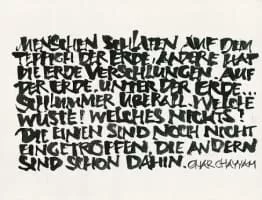 MENSCHEN SCHLAFEN AUF DEM
TEPPICH DER ERDE. ANDERE HAT
DIE ERDE VERSCHLUNGEN. AUF
DER ERDE. UNTER DER ERDE...
SCHLUMMER ÜBERALL. WELCHE
WÜSTE! WELCHES NICHTS!
DIE EINEN SIND NOCH NICHT
EINGETROFFEN. DIE ANDERN
SIND SCHON DAHIN. OMAR CHAYYAM